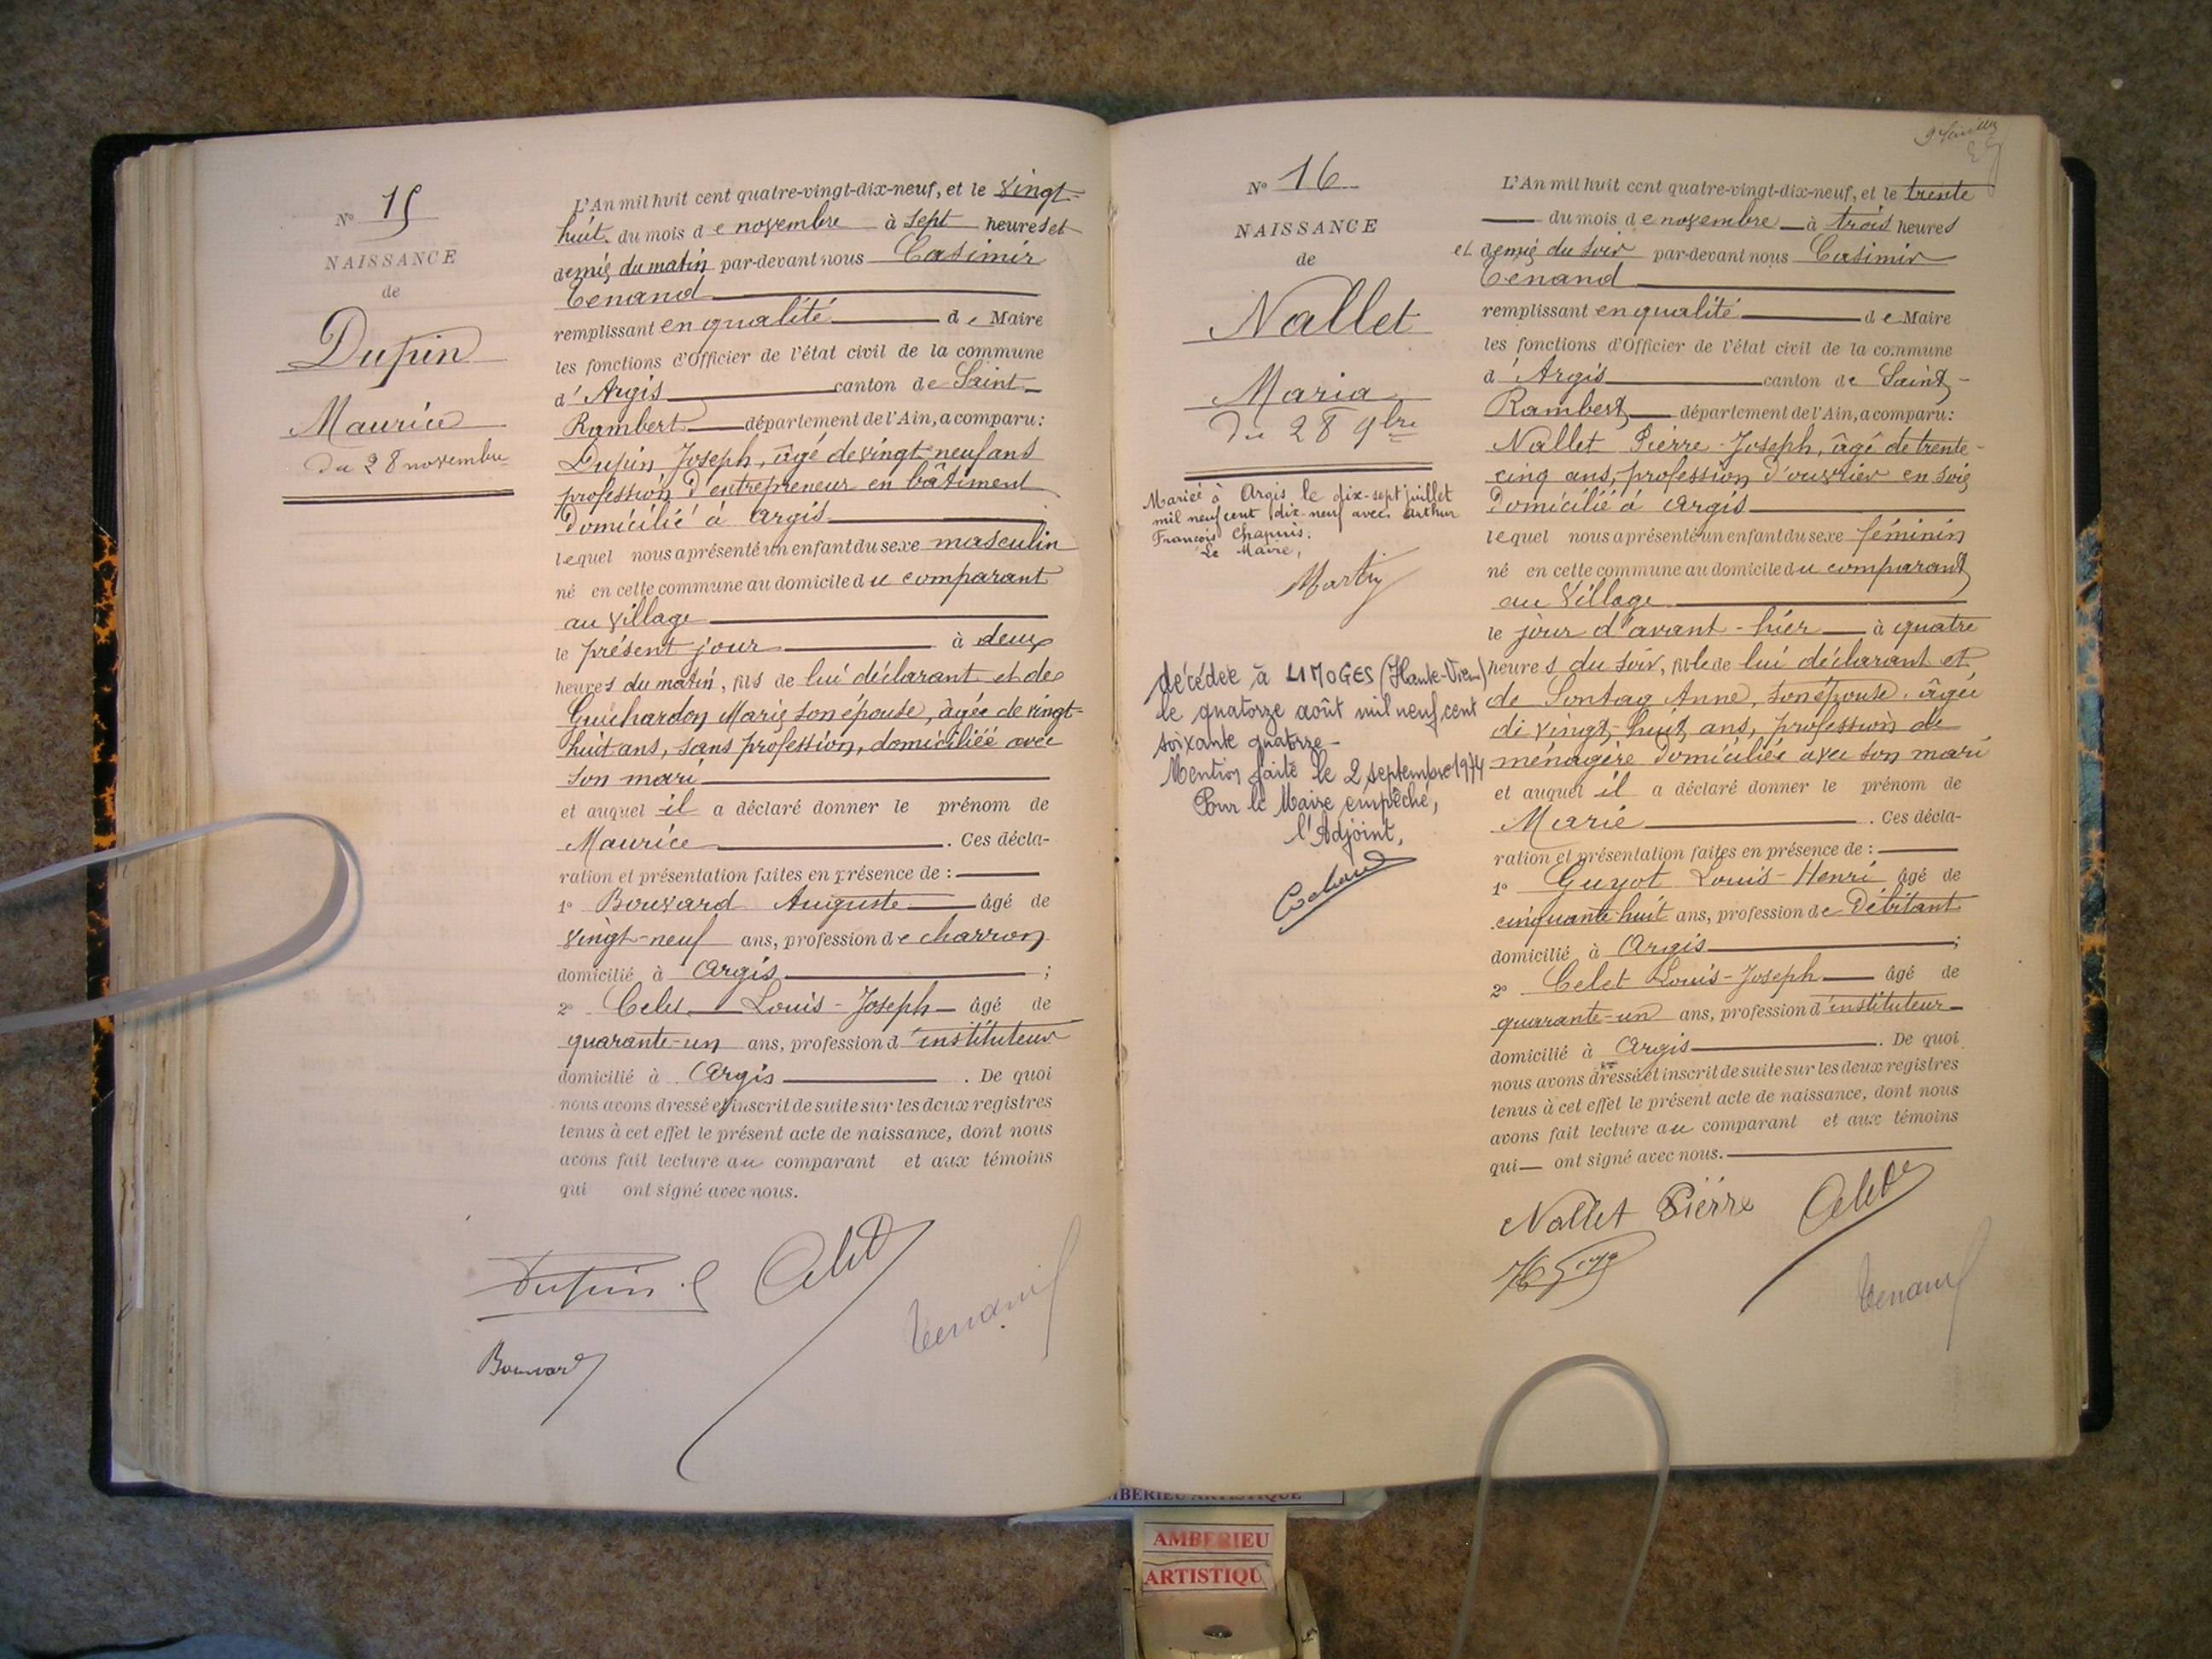 N° 15
NAISSANCE
de
Dupin
Maurice
Du 28 novembre
L'An mil huit cent quatre-vingt-dix-neuf, et le vingt-
huit du mois de novembre à sept heures et
demie du matin par-devant nous Casimir
Tenand
remplissant en qualité de Maire
les fonctions d'Officier de l'état civil de la commune
d'Argis canton de Saint-
Rambert département de l'Ain, a comparu:
Dupin Joseph, âgé de vingt neuf ans
profession d'entrepreneur en bâtiment
Domicilié à Argis
lequel nous a présenté un enfant du sexe masculin
né en cette commune au domicile du comparant
au village
le présent jour à deux
heures du matin, fils de lui déclarant et de
Guichardon Marie son épouse, âgée de vingt-
huit ans, sans profession, domiciliée avec
son mari
et auquel il a déclaré donner le prénom de
Maurice. Ces décla-
ration et présentation faites en présence de :
1° Bouvard Auguste âgé de
vingt-neuf ans, profession de charron
domicilié à Argis ;
2° Celet Louis-Joseph âgé de
quarante-un ans, profession d'instituteur
domicilié à Argis. De quoi
nous avons dressé et inscrit de suite sur les deux registres
tenus à cet effet le présent acte de naissance, dont nous
avons fait lecture au comparant et aux témoins
qui ont signé avec nous.
Dupin J. Celet
Tenand
Bouvard
N° 16
NAISSANCE
de
Nallet
Maria
Du 28 9bre
Mariée à Argis le dix-sept juillet
mil neuf cent dix-neuf avec Arthur
François Chapuis.
Le Maire,
Martin
décédée à LIMOGES (Haute-Vienne)
le quatorze août mil neuf cent
soixante quatorze
Mention faite le 2 septembre 1974
Pour le Maire empêché,
l'Adjoint,
L'An mil huit cent quatre-vingt-dix-neuf, et le trente
du mois de novembre à trois heures
et demie du soir par-devant nous Casimir
Tenand
remplissant en qualité de Maire
les fonctions d'Officier de l'état civil de la commune
d'Argis canton de Saint-
Rambert département de l'Ain, a comparu:
Nallet Pierre-Joseph, âgé de trente-
cinq ans, profession d'ouvrier en soie
Domicilié à Argis
lequel nous a présenté un enfant du sexe féminin
né en cette commune au domicile du comparant
au village
le jour d'avant-hier à quatre
heures du soir, fille de lui déclarant et
de Sontag Anne, son épouse, âgée
de vingt-huit ans, profession de
ménagère domiciliée avec son mari
et auquel il a déclaré donner le prénom de
Marie. Ces décla-
ration et présentation faites en présence de :
1° Guyot Louis-Henri âgé de
cinquante-huit ans, profession de Débitant
domicilié à Argis ;
2° Celet Louis-Joseph âgé de
quarante-un ans, profession d'instituteur
domicilié à Argis. De quoi
nous avons dressé et inscrit de suite sur les deux registres
tenus à cet effet le présent acte de naissance, dont nous
avons fait lecture au comparant et aux témoins
qui ont signé avec nous.
Nallet Pierre Celet
Tenand
AMBERIEU ARTISTIQUE
AMBERIEU
ARTISTIQU